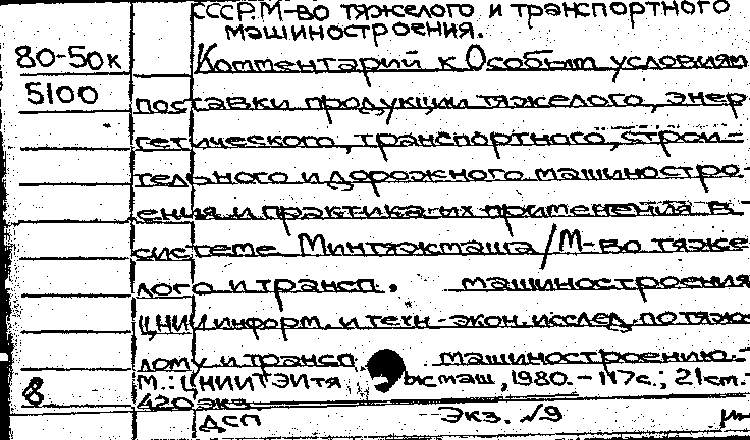 СССР. М-во тяжелого и транспортного
машиностроения.
80-50к Комментарий к Особым условиям
5100 поставки продукции тяжелого, энер
гетического, транспортного, строи-
тельного и дорожного машиностро-
ения и практика их применения в
системе Минтяжмаша/М-во тяже
лого и трансп. машиностроения
ЦНИИ информ. и техн-экон. исслед. по тяже
лому и трансп. машиностроению.-
М.: ЦНИИТЭИтя ыcмаш, 1980.-117с.; 21см.-
8 420 экз
ДСП Экз. №9